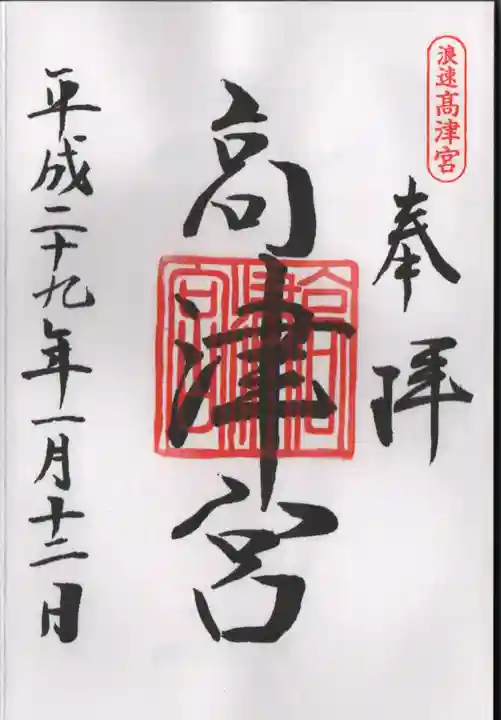 浪速高津宮
奉拝
高津宮
平成二十九年一月十二日